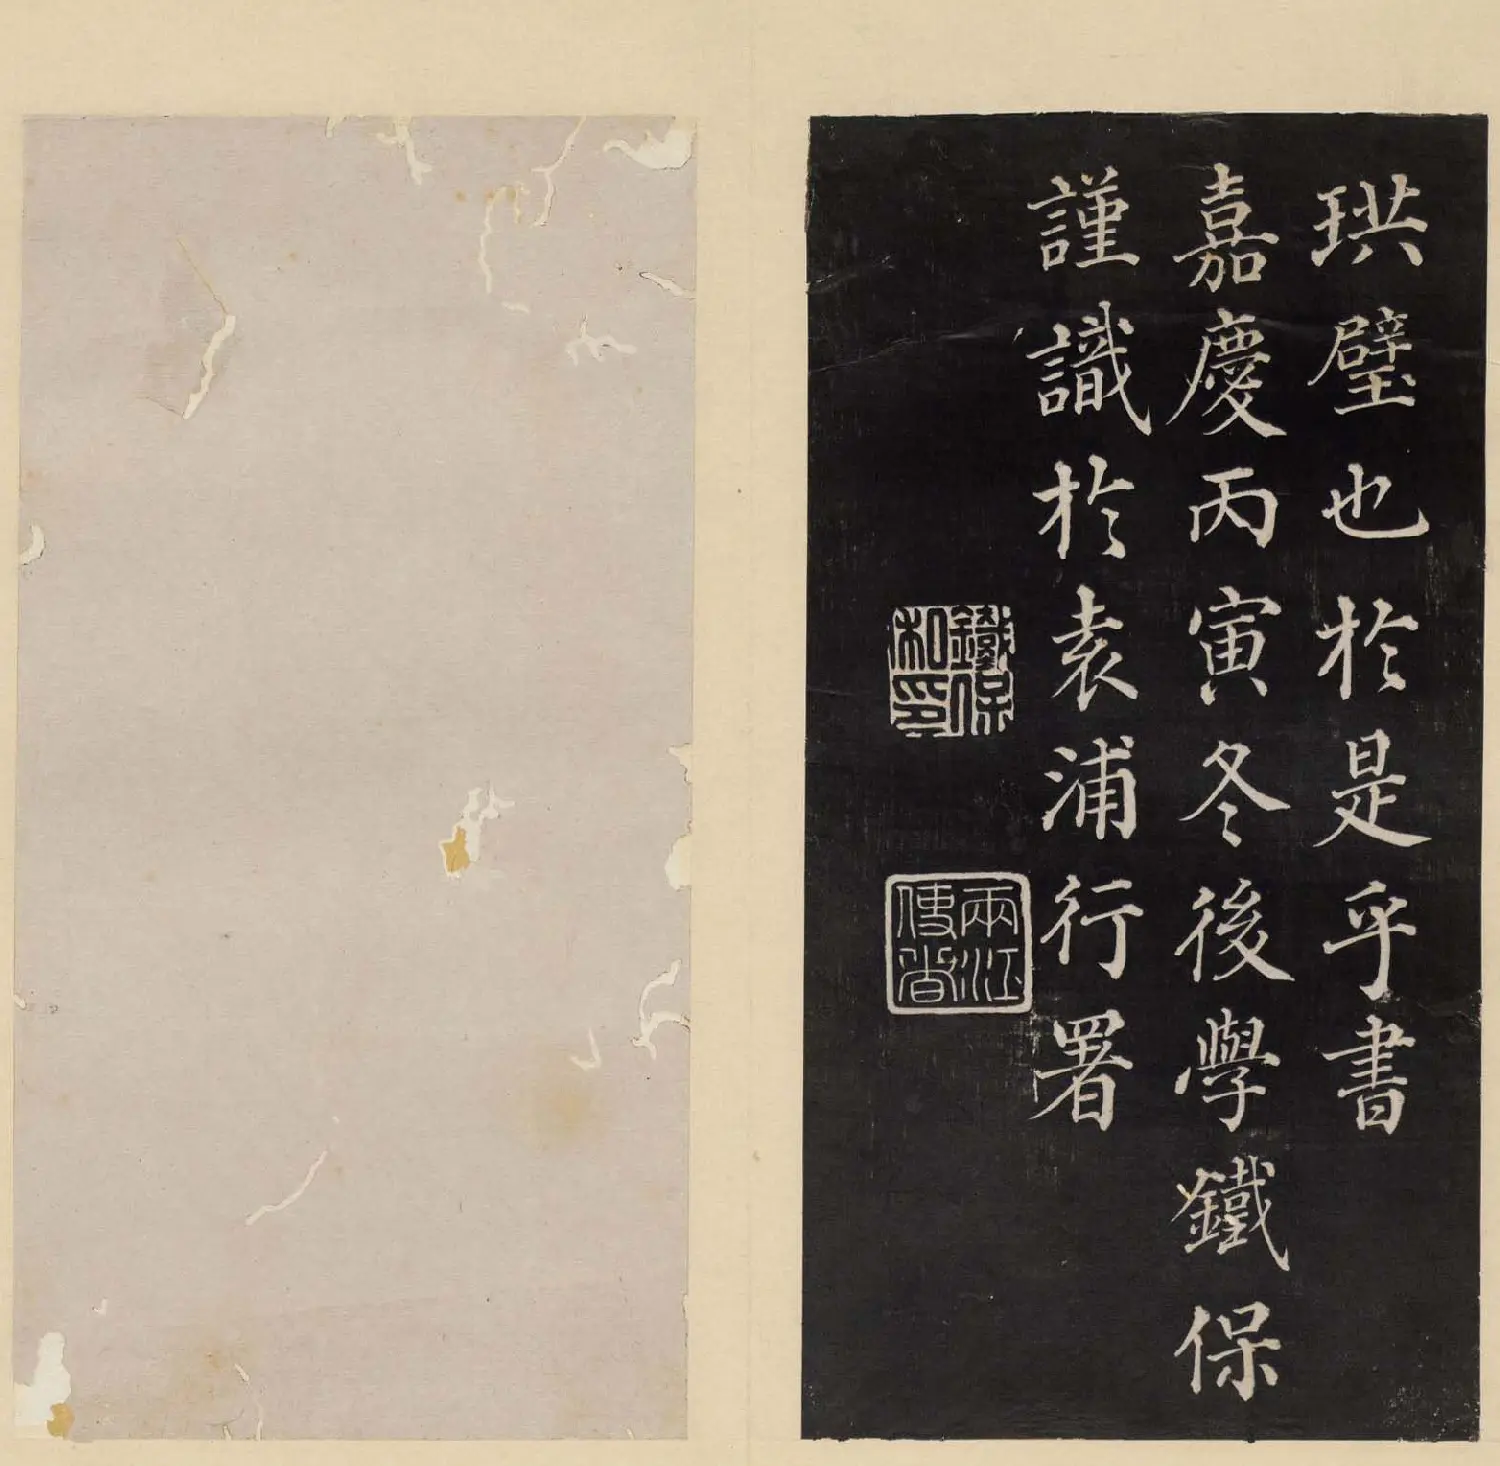 珙璧也於是乎書
嘉慶丙寅冬後學鐵保
謹識於袁浦行署
鐵保私印
兩江使者